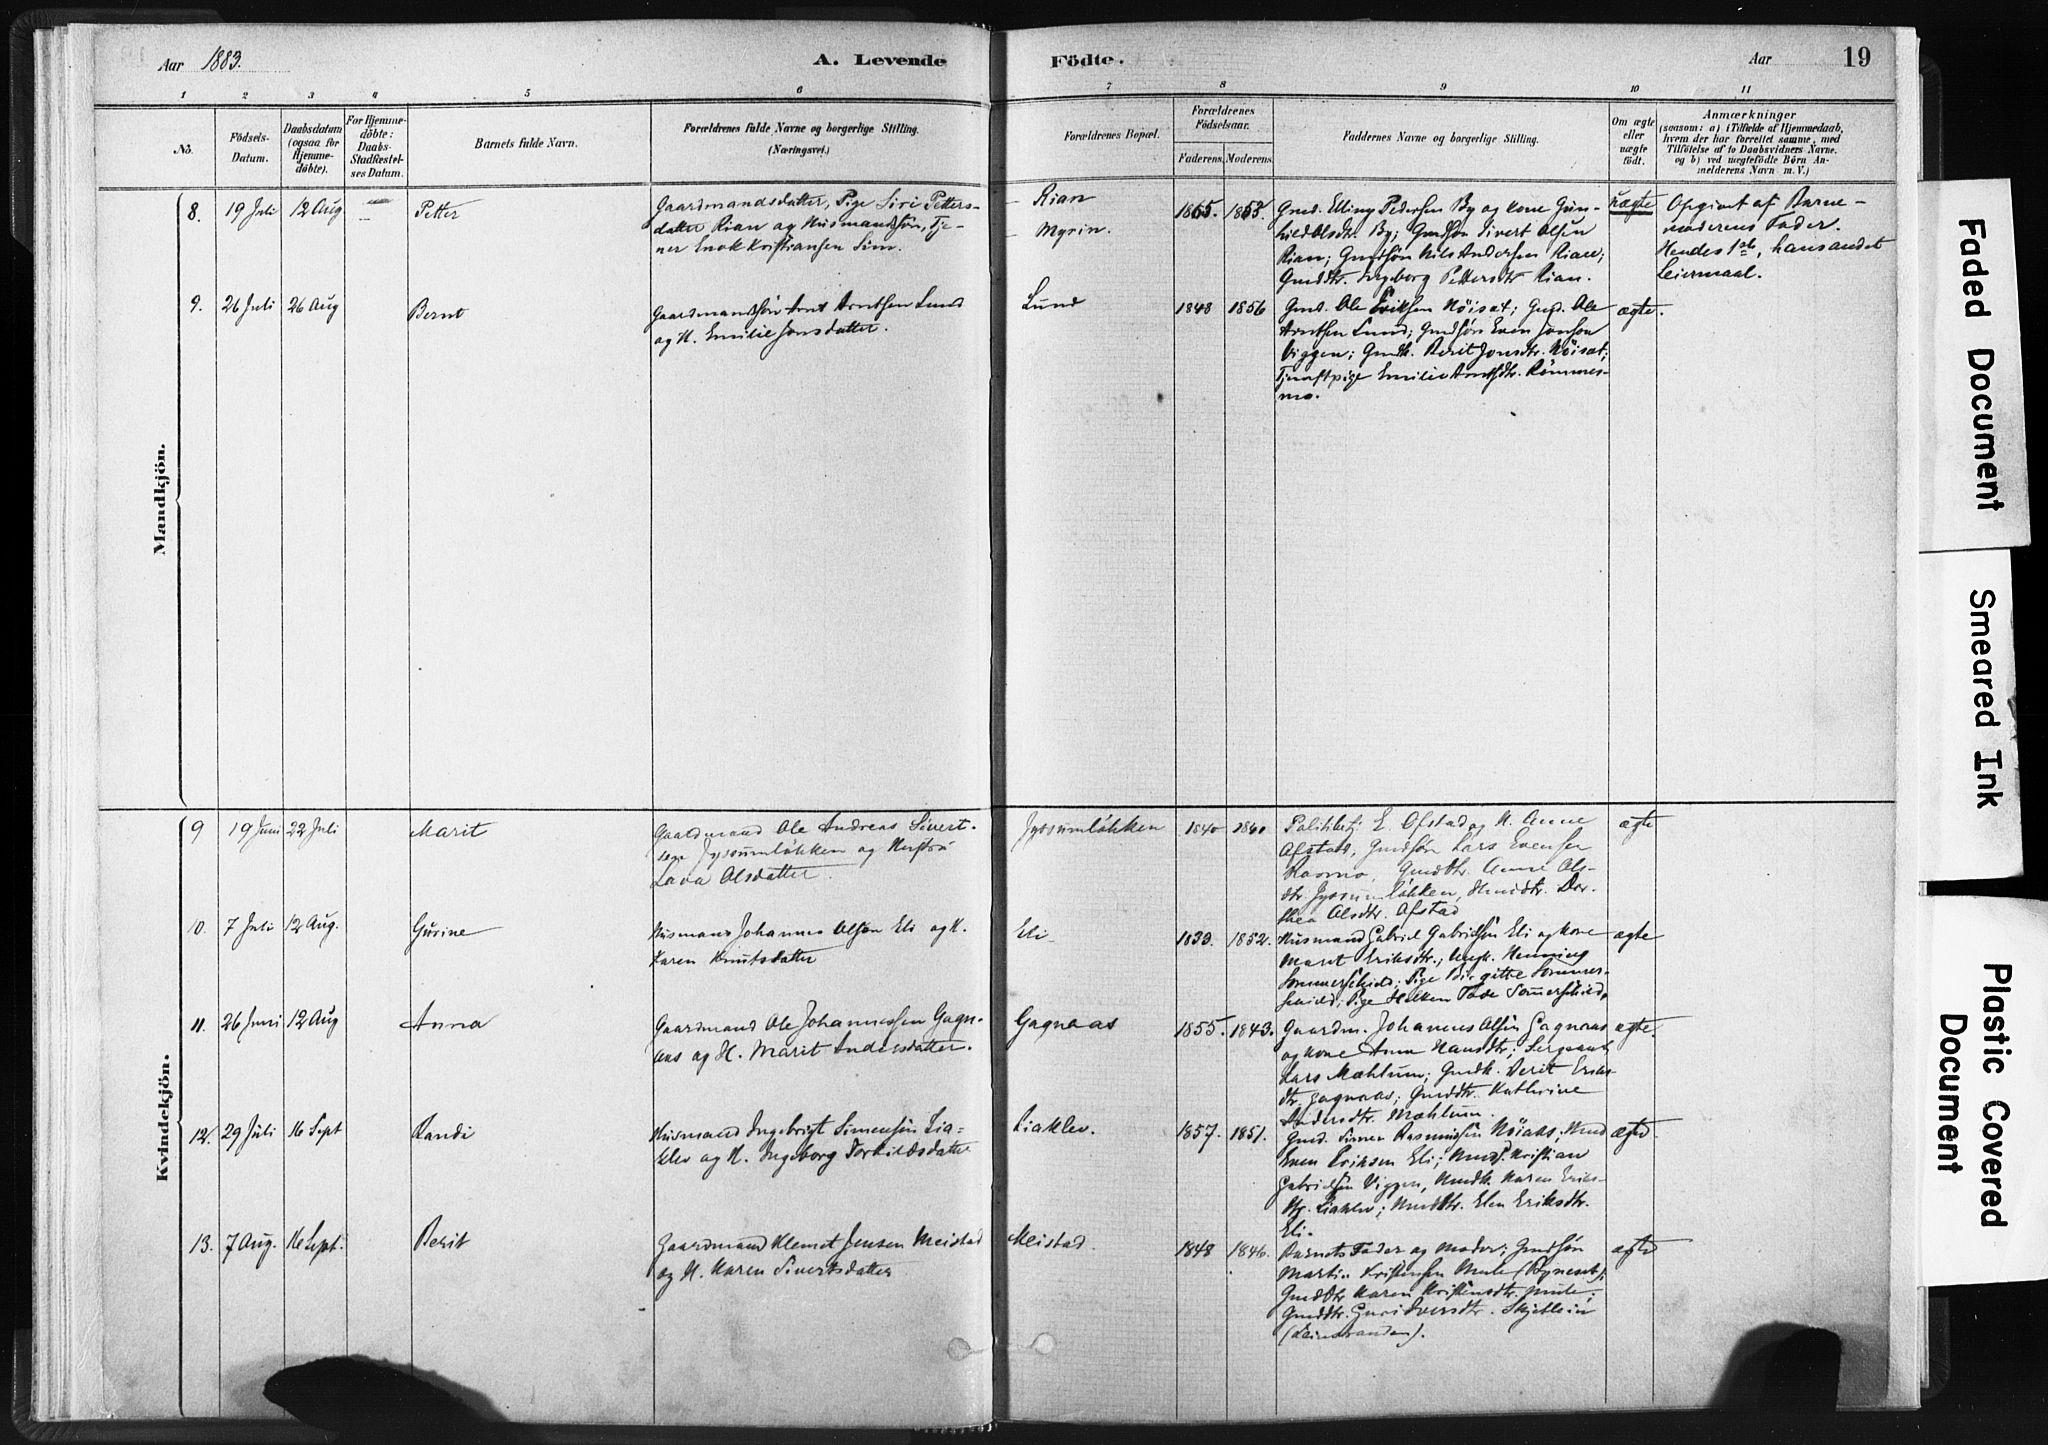 Aar 1883.
A. Levende
Födte.
Aar
19
1 2 3 4 5 6 7 8 9 10 11
No.
Födsels-
Datum.
Daabsdatum
(ogsaa for
Hjemme-
döbte).
For Hjemme-
döbte:
Daabs-
Stadfæstel-
ses Datum.
Barnets fulde Navn.
Forældrenes fulde Navne og borgerlige Stilling.
(Næringsvei.)
Forældrenes Bopæl.
Forældrenes
Födselsaar.
Faderens. Moderens.
Faddernes Navne og borgerlige Stilling.
Om ægte
eller
uægte
födt.
Anmærkninger
(saasom: a) i Tilfælde af Hjemmedaab,
hvem der har forrettet samme, med
Tilföielse af to Daabsvidners Navne.
og b) ved uægtefödte Börn An-
melderens Navn m. V.)
Mandkjön.
8. 19 Juli 12 Aug Petter
Gaardmandsdatter, Pige Siri Petters-
datter Rian og Husmandssön, Tje-
ner Enok Kristiansen Sim.
Rian
Myrin.
1865. 1853.
Gmd. Elling Pedersen By og Kone Gun-
hild Olsdtr. By; Gmdsön Sivert Olsen
Rian; Gmdsön Nils Andersen Rian;
Gmddtr. Ingeborg Pettersdtr Rian.
uægte
Opgivet af Barne-
moderens Fader.
Hendes 1ste, hans andet
Leiermaal.
9. 26 Juli 26 Aug Bernt
Gaardmandssön Arnt Arntsen Lund
og H. Emilie Jonsdatter.
Lund
1848 1856
Gmd. Ole Eriksen Nöisat; Gmd. Ole
Arntsen Lund; Gmdsön Even Jonsen
Viggen; Gmdk. Berit Jonsdtr. Nöisat;
Tjenestpige Emilie Arntsdtr. Römmes-
mo.
ægte.
Kvindekjön.
9 19 Juni 22 Juli Marit
Gaardmand Ole Andreas Sivert-
sen Jyssumlökken og Hustru
Lava Olsdatter.
Jyssumlökken
1840 1840
E. Ofstad og H. Anne
Ofstad, Gmdsön Lars Evensen
Gmddtr. Anne Ols-
dtr. Jyssumlökken, Dor-
thea Olsdtr. Ofstad
ægte
10. 7 Juli 12 Aug. Gurine
Husmand Johannes Olsen Eli og H.
Karen Knutsdatter
Eli
1839. 1852.
Husmand Gabriel Gabrielsön Eli og Kone
Marit Eriksdtr.; Ungk. Henning
Sommerschield; Pige Birgitte Sommer-
schield; Pige Sommerschield.
ægte
11. 26 Juni 12 Aug Anna
Gaardmand Ole Johannessen Gagn-
aas og H. Marit Andersdatter.
Gagnaas
1855. 1843.
Gaardm. Johannes Olsen Gagnaas
og Kone Anne Hansdtr; Sergeant
Lars Mæhlum; Gmdk. Berit Eriks-
dtr. Gagnaas; Gmddtr. Kathrine
Andersdtr. Mæhlum.
ægte.
12. 29 Juli 16 Sept Randi
Husmand Ingebrigt Simensön Lia-
klev og H. Ingeborg Torkildsdatter
Liaklev.
1857. 1851.
Gmd. Simen Rasmussen Nöisat; Hmd
Even Eriksen Eli; Hmds. Kristian
Gabrielsön Viggen, Hmdk. Karen Eriks-
dtr. Liaklev; Hmddtr. Elen Eriksdtr.
Eli.
ægte.
13. 7 Aug. 16 Sept. Berit
Gaardmand Klemet Jensen Meistad
og H. Karen Sivertsdatter
Meistad.
1848 1846.
Barnets Fader og Moder; Gmdsön
Martin Kristensen Mule (Bynesset);
Gmddtr Karen Kristensdtr. Mule;
Gmddtr. Guri Iversdtr. Skjetlein
(Leinstranden).
ægte
Faded Document
Smeared Ink
Plastic Covered
Document